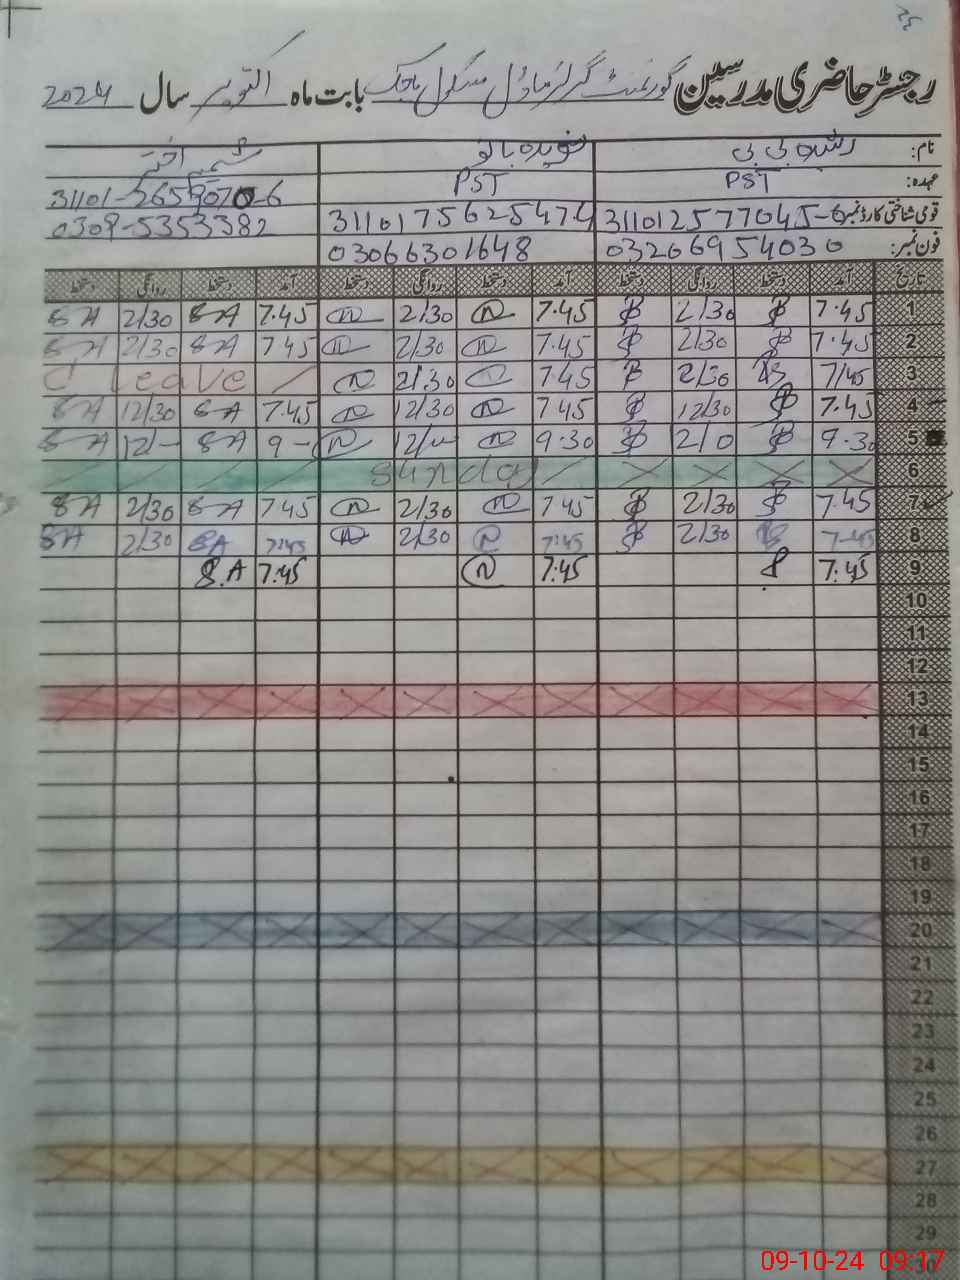 رجسٹر حاضری مدرسین گورنمنٹ گرلز ماڈل سکول بابت ماہ اکتوبر سال 2024
نام: بی بی شمیم اختر
عہدہ: PST PST
قومی شناختی کارڈ نمبر 311012577045-6 3110175625474 31101-2659070-6
فون نمبر: 03206954030 03066301648 0309-5353382
تاریخ آمد دستخط روانگی دستخط آمد دستخط روانگی دستخط آمد دستخط روانگی دستخط
1 7.45 2/30 7.45 N 2/30 N 7.45 SA 2/30 SA
2 7.45 2/30 7.45 N 2/30 N 7 45 SA 2/30 SA
3 7/45 2/30 7 45 2/30 N leave
4 7.45 12/30 7 45 N 12/30 N 7.45 SA 12/30 SA
5 9.30 9.30 N N 9 - SA 12/- SA
6 Sunday
7 7.45 2/30 7 45 N 2/30 N 7 45 SA 2/30 SA
8 7.45 2/30 7:45 N 2/30 N 7:45 SA 2/30 SA
9 7:45 7:45 N 7:45 S.A
10
11
12
13
14
15
16
17
18
19
20
21
22
23
24
25
26
27
28
29
30
09-10-24 09:17